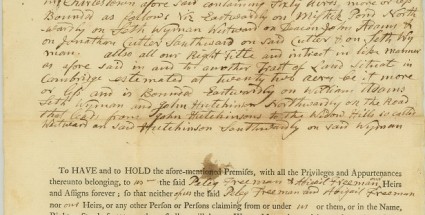 in Charlestown afore said containing Sixty Acres more or less
Bounded as follows Viz Eastwardly on Mystik Pond North
wardly on Seth Wyman Westward on Deacon John Adams &
on Jonathan Cutler Southward on said Cutler & on Seth Wy
man also all our Right Title and intrest in like manner
as afore said in and to another Tract of Land Situate in
Cambridge estemated at twenty two Acres be it more
or less and is Bounded Eastwardly on William Adams
Seth Wyman and John Hutchinson Northwardly on the Road
that leads from John Hutchinsons to the Hills so called
Westward on said Hutchinson Southwardly on said Wyman
To HAVE and to HOLD the afore-mentioned Premises, with all the Privileges and Appurtenances
thereunto belonging, to the said Freeman & Abigail Freeman Heirs
and Assigns forever; so that neither the said Freeman and Abigail Freeman
nor our Heirs, or any other Person or Persons claiming from or under us or them, or in the Name,